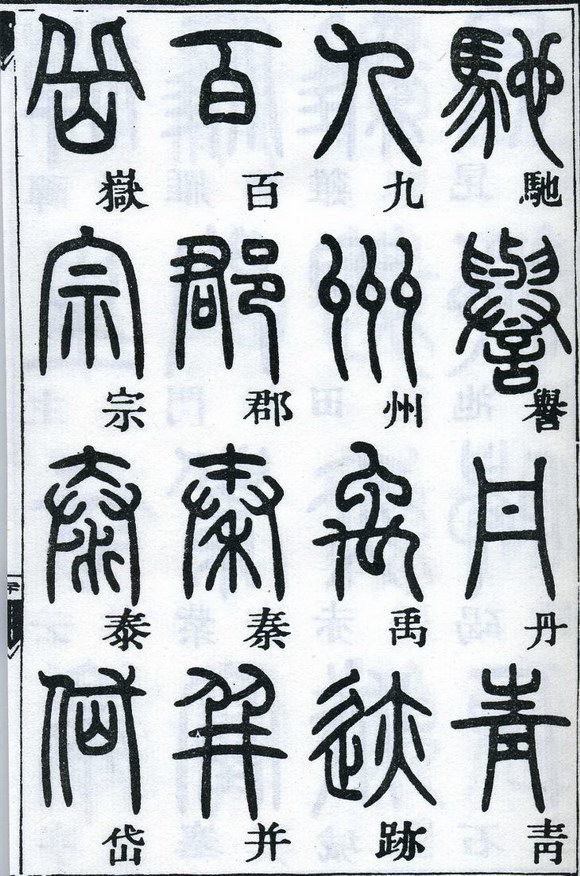 馳譽丹青
九州禹跡
百郡秦并
嶽宗泰岱